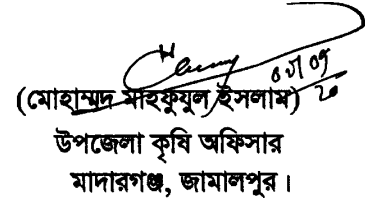 (মোহাম্মদ মাহফুযুল ইসলাম)
উপজেলা কৃষি অফিসার
মাদারগঞ্জ, জামালপুর।